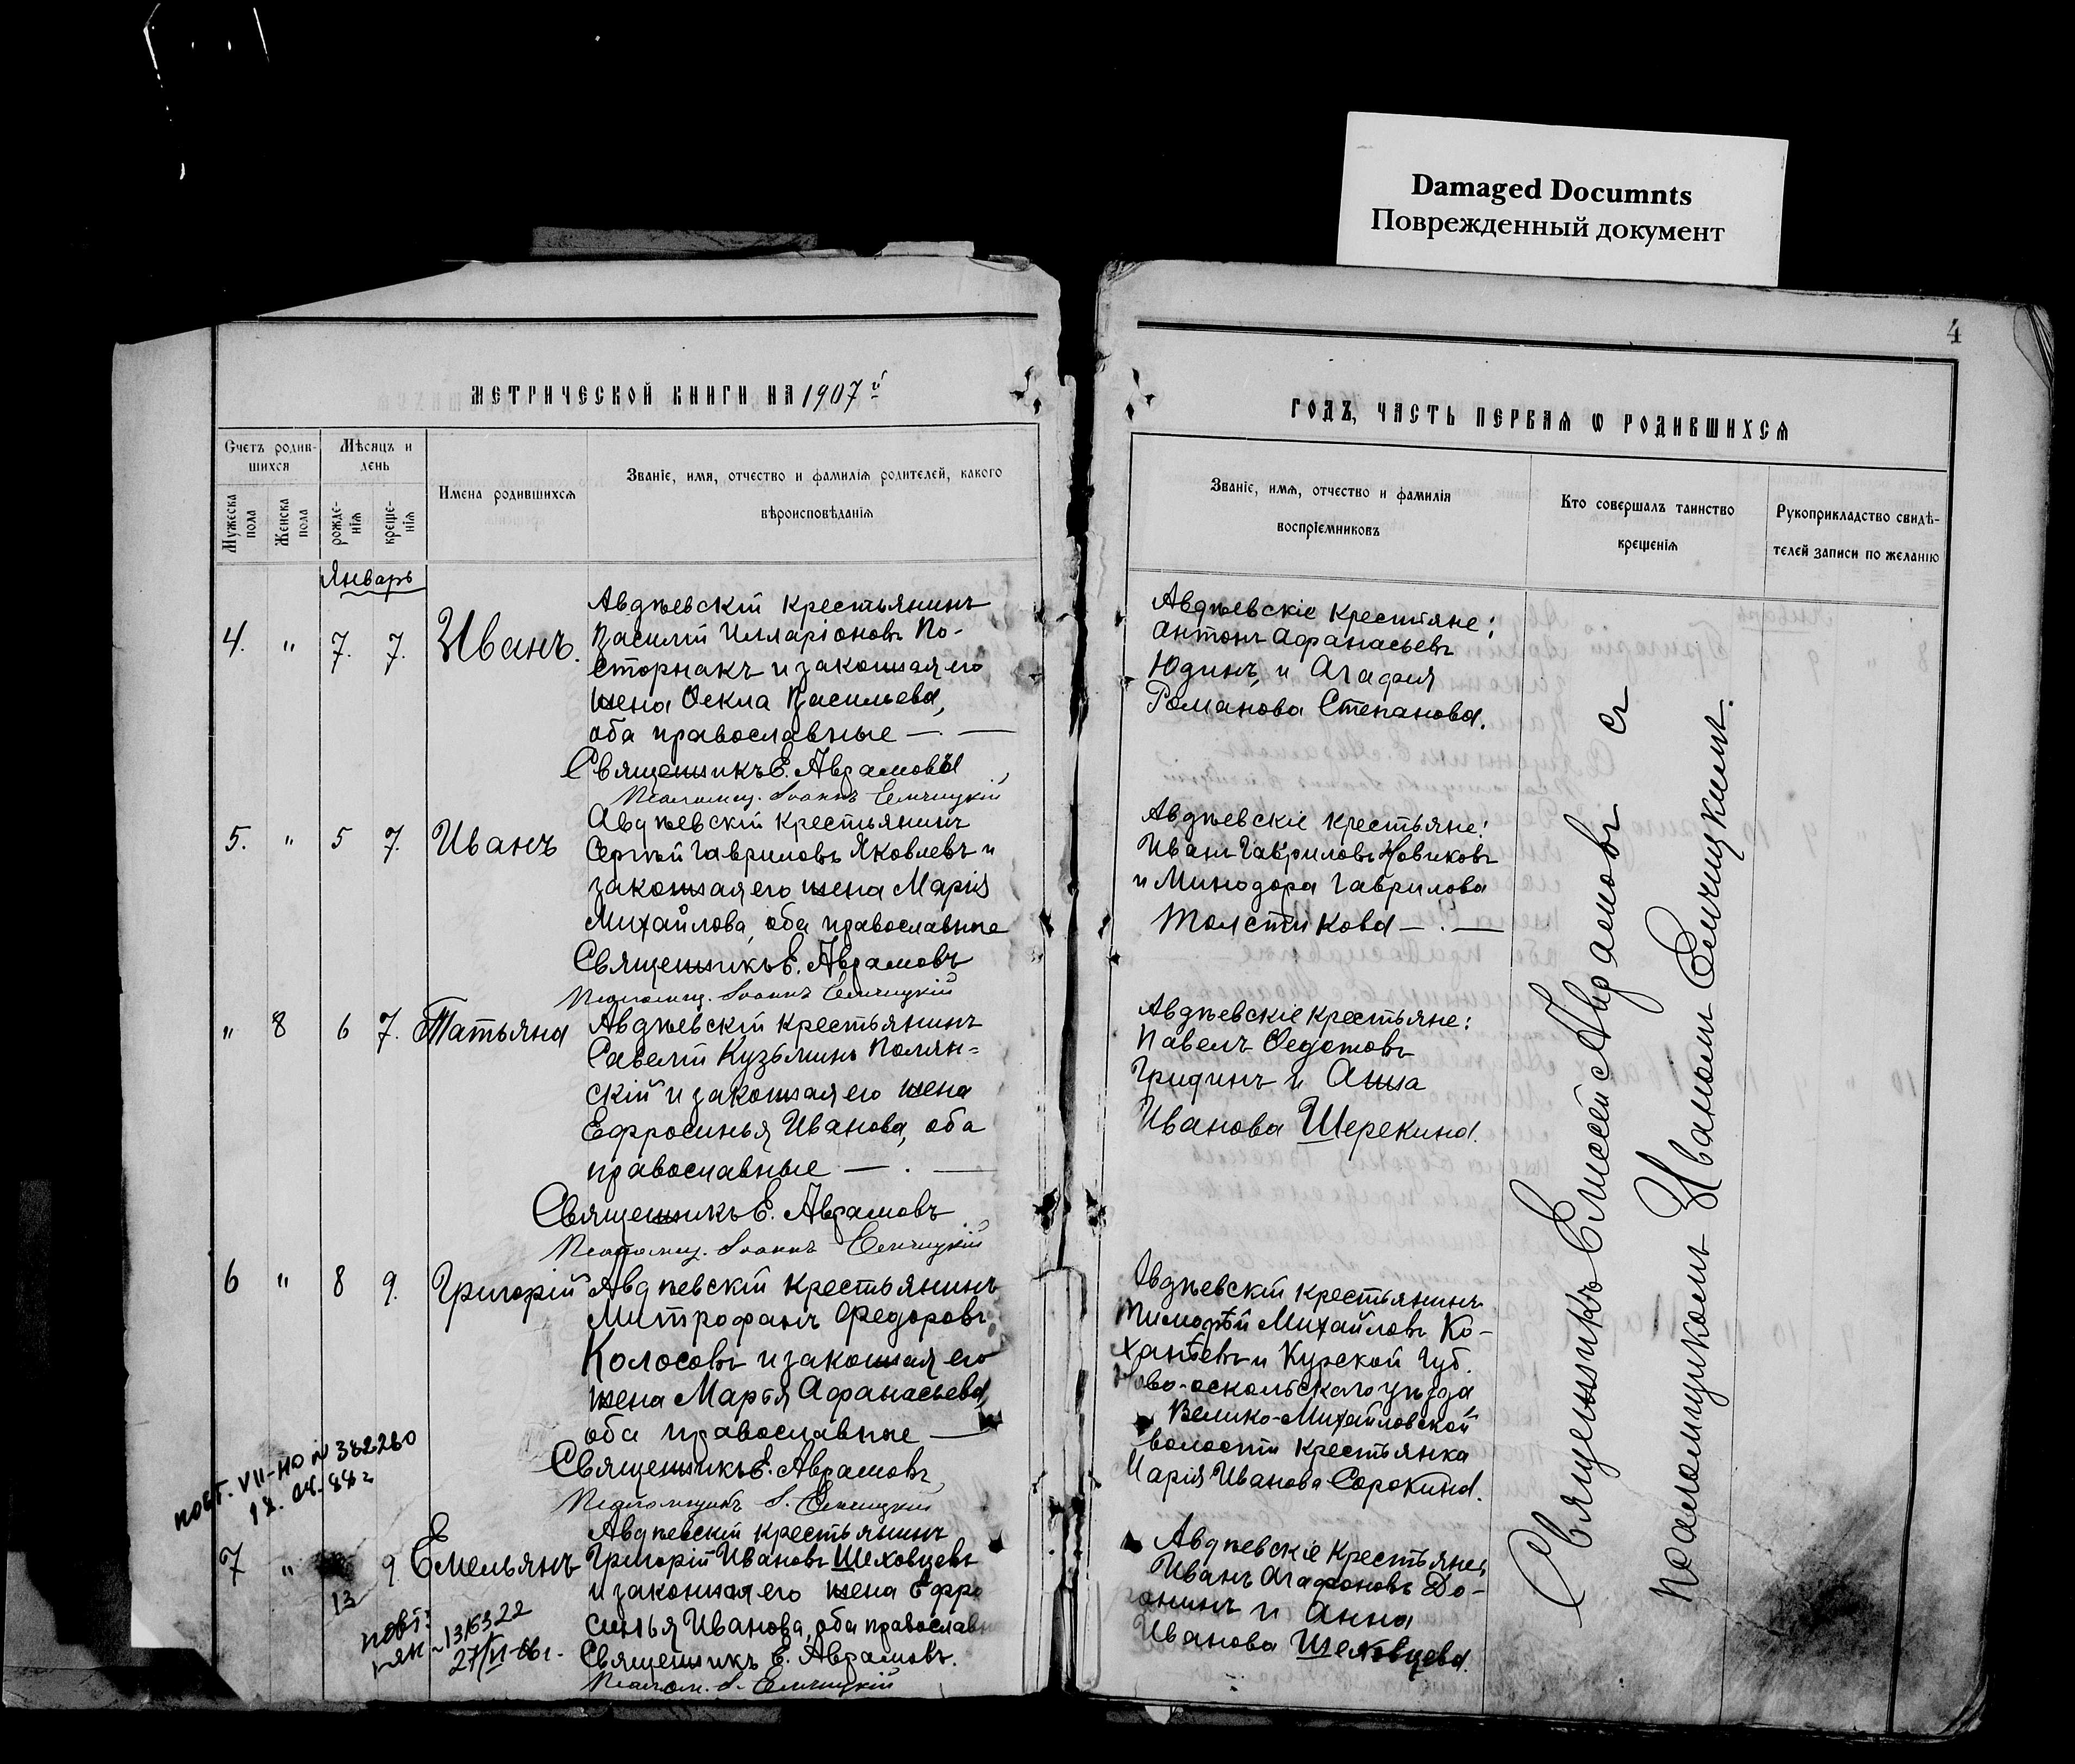 Damaged Documnts
Поврежденный документ
4
МЕТРИЧЕСКОЙ КНИГИ НА 1907й
Счетъ родив-
шихся
Мѣсяцъ и
день
Мужеска
пола
Женска
пола
рожде-
нія
креще-
нія
Имена родившихся
Званіе, имя, отчество и фамилія родителей, какого
вѣроисповѣданія
Январь
4. " 7. 7. Иванъ.
Авдѣевскій крестьянинъ
Василій Илларіоновъ По-
сторнакъ и законная его
жена Ѳекла Васильева,
оба православные — . —
Священникъ Е. Авраамовъ
Псаломщ. Іоаннъ Семчицкій
5. " 5 7. Иванъ
Авдѣевскій крестьянинъ
Сергѣй Гавриловъ Яковлевъ и
законная его жена Марія
Михайлова, оба православные
Священникъ Е. Аврамовъ
Псаломщ. Іоаннъ Семчицкій
" 8 6 7. Татьяна
Авдѣевскій крестьянинъ
Савелій Кузьминъ Полян=
скій и законная его жена
Ефросинья Иванова, оба
православные — . —
Священникъ Е. Аврамовъ
Псаломщ. Іоаннъ Семчицкій
6 " 8 9. Григорій
Авдѣевскій крестьянинъ
Митрофанъ Федоровъ
Колосовъ и законная его
жена Марья Афанасьева,
оба православные —
Священникъ Е. Аврамовъ
Псаломщикъ І. Семчицкій
повт. VII-НО N 382280
12. 04. 88г
7 " 9. Емельянъ
13
Авдѣевскій крестьянинъ
Григорій Ивановъ Шеховцевъ
и законная его жена Ефро
синья Иванова, оба православн
Священникъ Е. Аврамовъ.
Псалом. І. Семчицкій
повт:
27/VI-66г.
ГОДЪ, ЧАСТЬ ПЕРВАЯ Ѡ РОДИВШИХСЯ
Званіе, имя, отчество и фамилія
воспріемниковъ
Кто совершалъ таинство
крещенія
Рукоприкладство свидѣ-
телей записи по желанію
Авдѣевскіе крестьяне:
Антонъ Афанасьевъ
Юдинъ, и Агафия
Романова Степанова.
Авдѣевскіе крестьяне:
Иванъ Гавриловъ Новиковъ
и Минодора Гаврилова
Толстикова — . —
Авдѣевскіе крестьяне:
Павелъ Ѳедотовъ
Гридинъ и Анна
Иванова Шерекина.
Авдѣевскій крестьянинъ
Тимофѣй Михайловъ Ко-
хантевъ и Курской Губ.
Ново-оскольскаго уѣзда,
Велико-Михайловской
волости крестьянка
Марія Иванова Сорокина.
Авдѣевскіе крестьяне,
Иванъ Агафоновъ До-
онинъ и Анна
Иванова Шеховцева.
Священникъ Елисей Аврамовъ съ
псаломщикомъ Иваномъ Семчицкимъ.